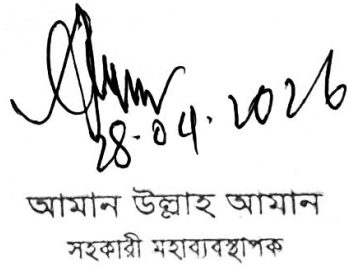 28.04.2026
আমান উল্লাহ আমান
সহকারী মহাব্যবস্থাপক